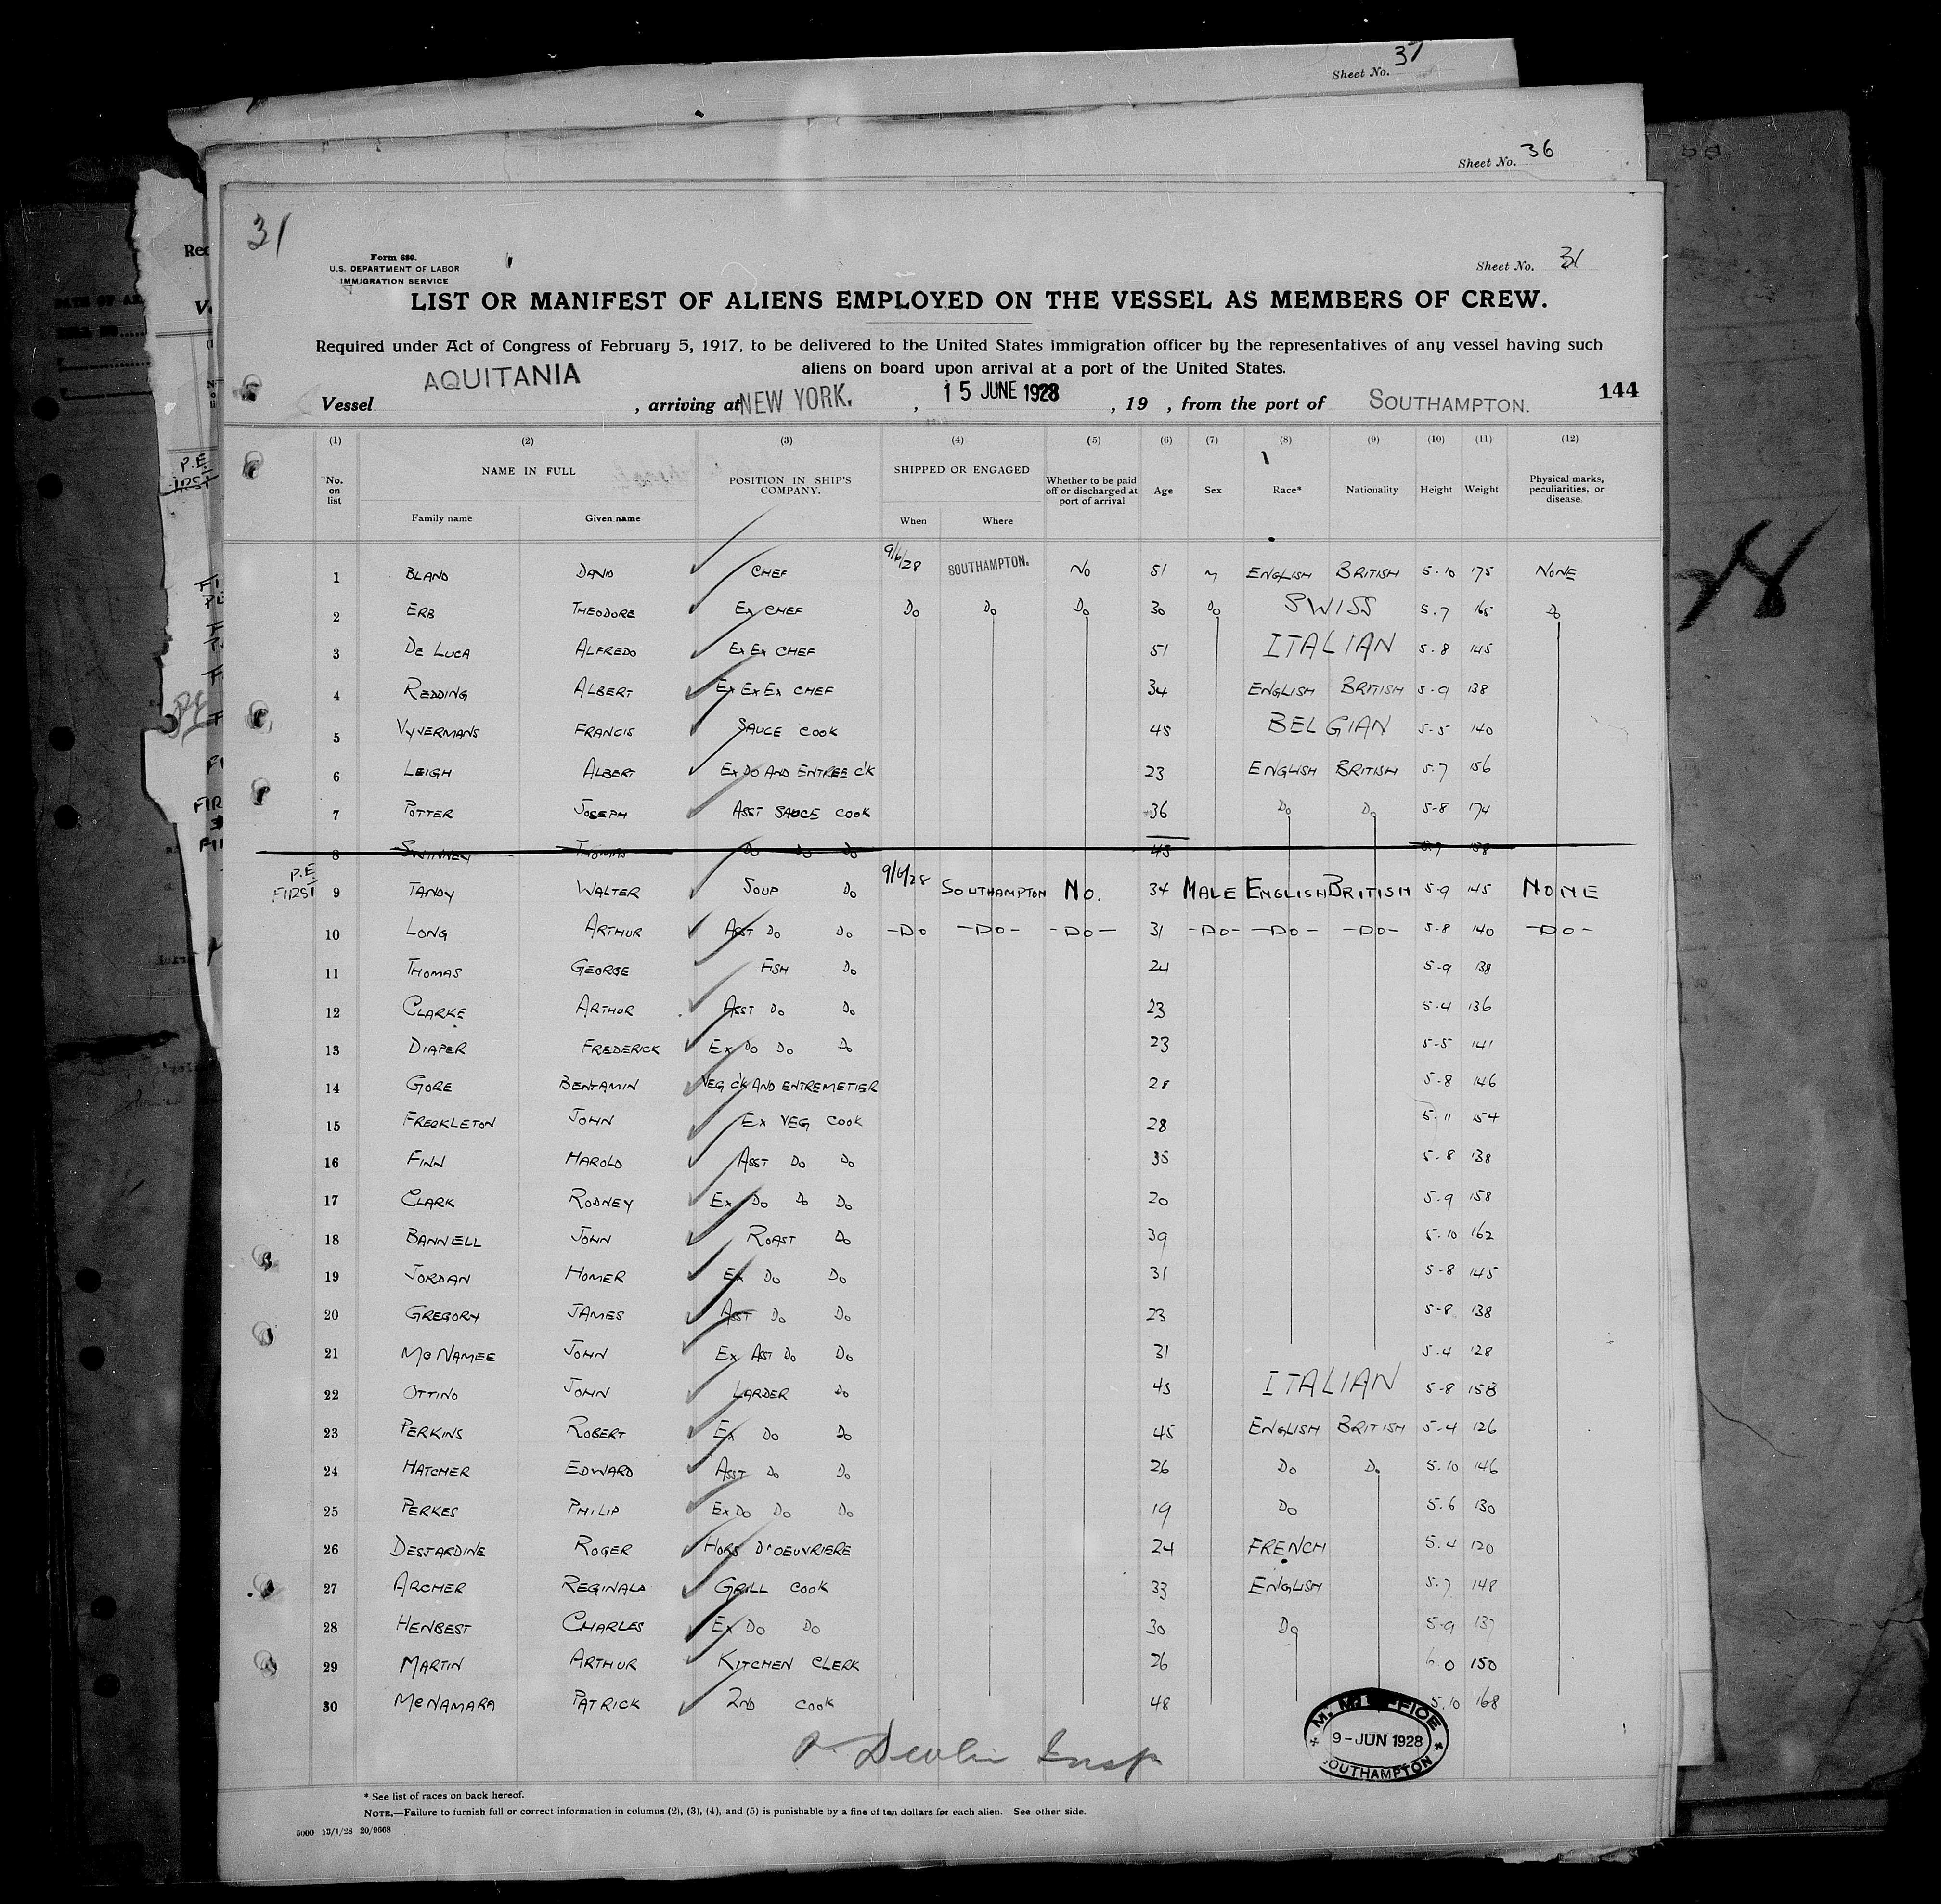 Sheet No. 37
Sheet No. 36
31
Form 680.
U.S. DEPARTMENT OF LABOR
IMMIGRATION SERVICE
Sheet No. 31
LIST OR MANIFEST OF ALIENS EMPLOYED ON THE VESSEL AS MEMBERS OF CREW.
Required under Act of Congress of February 5, 1917, to be delivered to the United States immigration officer by the representatives of any vessel having such
aliens on board upon arrival at a port of the United States.
Vessel AQUITANIA, arriving at NEW YORK., 15 JUNE 1928, 19 , from the port of SOUTHAMPTON. 144
(1) (2) (3) (4) (5) (6) (7) (8) (9) (10) (11) (12)
No. on list NAME IN FULL POSITION IN SHIP'S COMPANY. SHIPPED OR ENGAGED Whether to be paid off or discharged at port of arrival Age Sex Race* Nationality Height Weight Physical marks, peculiarities, or disease.
Family name Given name When Where
1 BLAND DAVID CHEF 9/6/28 SOUTHAMPTON. NO 51 M ENGLISH BRITISH 5.10 175 NONE
2 ERB THEODORE EX CHEF DO DO DO 30 DO SWISS 5.7 165 DO
3 DE LUCA ALFREDO EX EX CHEF 51 ITALIAN 5.8 145
4 REDDING ALBERT EX EX EX CHEF 34 ENGLISH BRITISH 5-9 138
5 VYVERMANS FRANCIS SAUCE COOK 45 BELGIAN 5-5 140
6 LEIGH ALBERT EX DO AND ENTREE C'K 23 ENGLISH BRITISH 5.7 156
7 POTTER JOSEPH ASST SAUCE COOK 36 DO DO 5-8 174
8 SWINNEY THOMAS DO DO DO 45
P.E. FIRST 9 TANDY WALTER SOUP DO 9/6/28 SOUTHAMPTON NO. 34 MALE ENGLISH BRITISH 5-9 145 NONE
10 LONG ARTHUR ASST DO DO -DO -DO- -DO- 31 -DO- -DO- -DO- 5-8 140 -DO-
11 THOMAS GEORGE FISH DO 24 5-9 138
12 CLARKE ARTHUR ASST DO DO 23 5.4 136
13 DIAPER FREDERICK EX DO DO DO 23 5-5 141
14 GORE BENJAMIN VEG C'K AND ENTREMETIER 28 5-8 146
15 FRECKLETON JOHN EX VEG COOK 28 5.11 154
16 FINN HAROLD ASST DO DO 35 5-8 138
17 CLARK RODNEY EX DO DO DO 20 5.9 158
18 BANNELL JOHN ROAST DO 39 5.10 162
19 JORDAN HOMER EX DO DO 31 5-8 145
20 GREGORY JAMES ASST DO DO 23 5-8 138
21 McNAMEE JOHN EX ASST DO DO 31 5.4 128
22 OTTINO JOHN LARDER DO 45 ITALIAN 5-8 158
23 PERKINS ROBERT EX DO DO 45 ENGLISH BRITISH 5-4 126
24 HATCHER EDWARD ASST DO DO 26 DO DO 5.10 146
25 PERKES PHILIP EX DO DO DO 19 DO 5.6 130
26 DESJARDINE ROGER HORS D'OEUVRIERE 24 FRENCH 5.4 120
27 ARCHER REGINALD GRILL COOK 33 ENGLISH 5.7 148
28 HENBEST CHARLES EX DO DO 30 DO 5.9 137
29 MARTIN ARTHUR KITCHEN CLERK 26 6.0 150
30 McNAMARA PATRICK 2ND COOK 48 5.10 168
Devlin Insp
M. M. OFFICE
9-JUN 1928
SOUTHAMPTON
* See list of races on back hereof.
NOTE.—Failure to furnish full or correct information in columns (2), (3), (4), and (5) is punishable by a fine of ten dollars for each alien. See other side.
5000 13/1/28 20/9668